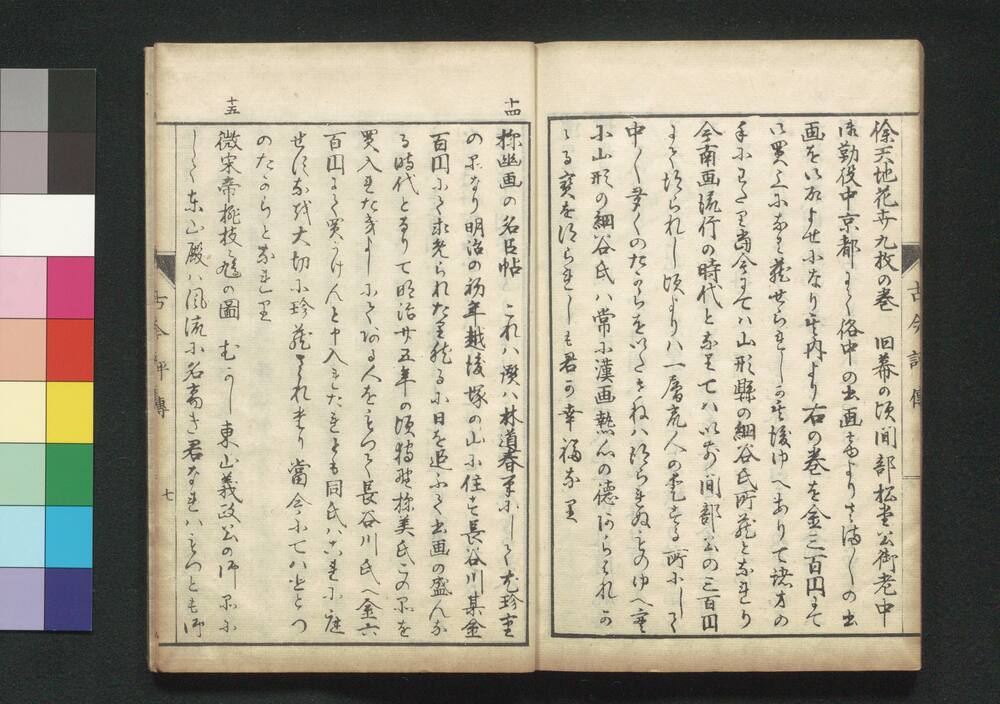 徐天地花卉九枚の巻 旧幕の頃間部松堂公御老中
御勤役中京都にて洛中の書画商よりさまし〳〵の書
画を御取よせになり其内より右の巻を金三百円にて
御買上になり蔵せられしか其後ゆへありて諸方の
手にわたり当今にては山形縣の細谷氏所蔵となれり
今南画流行の時代となりては以前間部公の三百円
にて求られし頃よりは一層衆人の愛する所にして
中〳〵多くのたからをいたさねは得られぬものゆへ実
に山形の細谷氏は常に漢画熱心の徳あらはれか
ゝる宝を得られしも君か幸福なり
十四
梁幽画の名臣帖 これは讃は林道春筆にして尤珍重
の品なり明治の初年越後塚の山に住す長谷川某金
百円にて求られたり然るに日を追ふて書画の盛んな
る時代となりて明治廿五年の頃 氏この品を
買入れたきよしにてある人をもつて長谷川氏へ金六
百円にて買うけんと申入れたれとも同氏は これに應
せすなほ大切に珍蔵せられ居り當今にては ひとつ
のたからとなれり
十五
徽宋帝桃枝ニ鳩の圖 むかし東山義政公の御品に
して東山殿は風流に名高き君なれはもつとも御
古今評傳
七